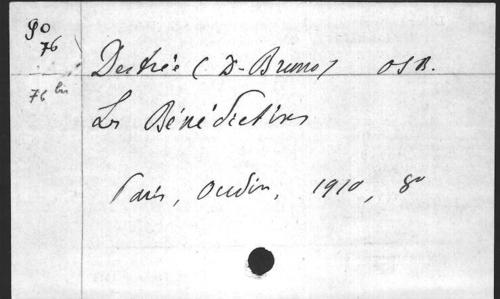 90
76
76 bis
Destrée (D. Bruno) OSB.
Les Bénédictins
Paris, Oudin, 1910, 8°